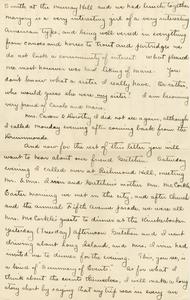 Smith at the Murray Hill and we had lunch together.
Margery is a very interesting girl of a very interesting
American type, and being well versed in everything
from canoes and horses to trout and partridges we
do not lack a community of interest. What pleased
me most however was her liking of mame. You
don't know what a sister I really have. Besides,
who would guess she were my sister! I am becoming
very proud of Carola and mame.
Mrs. Cowan & Dorothy I did not see again, although
I called Monday evening after coming back from the
Drummonds.
And now for the rest of this letter you will
want to hear about our friend Gretchen. Saturday
evening I called over at Richmond Hill, meeting
Mrs. Irvin & Irvin and Gretchen's mother Mrs. McCorkle.
Easter morning we met in the city, and after church
and the annual Fifth Avenue parade, we were all
Mrs. McCorkle's guests to dinner at the Knickerbocker.
Yesterday (Tuesday) afternoon Gretchen and I went
driving about Long Island, and Mrs. Irvin had
invited me to dinner for the evening. This, you see, is
a kind of a Summary of Events. As for what I
think about the events themselves, I will make a long
story short by saying that my trip was in every way